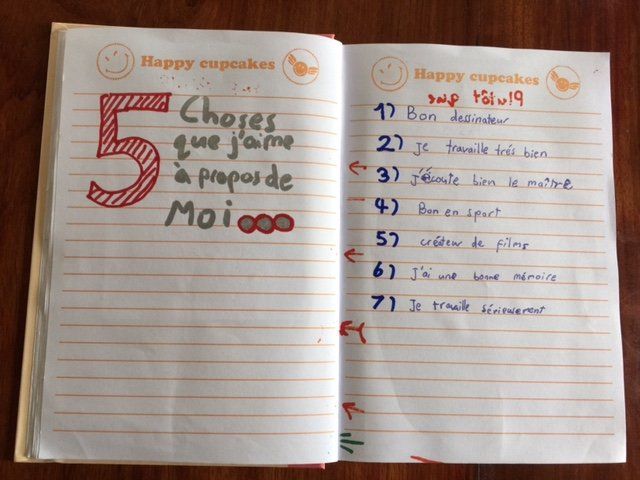 Happy cupcakes
5 Choses
que j'aime
à propos de
Moi...
Happy cupcakes
1) Bon dessinateur
2) je travaille trés bien
3) j'écoute bien le maître
4) Bon en sport
5) créateur de films
6) J'ai une bonne mémoire
7) Je travaille sérieusement